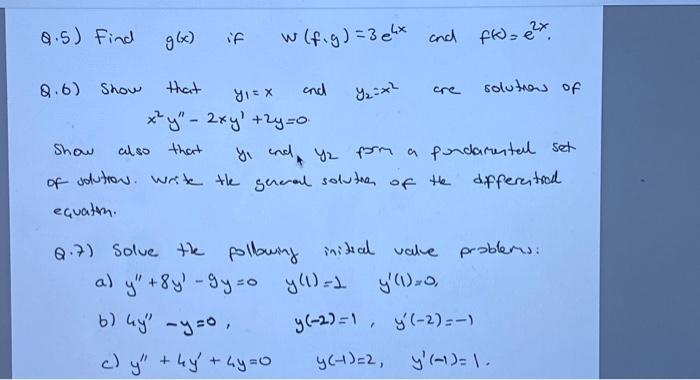 Q.5) Find g(x) if W(f,g)=3e^{4x} and f(x)=e^{2x}.
Q.6) Show that y₁=x and y₂=x² are solutions of
x²y''-2xy'+2y=0.
Show also that y₁ and y₂ form a fundamental set
of solutions. Write the general solution of the differential
equation.
Q.7) Solve the following initial value problems:
a) y''+8y'-9y=0 y(1)=1 y'(1)=0,
b) 4y''-y=0, y(-2)=1, y'(-2)=-1
c) y''+4y'+4y=0 y(-1)=2, y'(-1)=1.